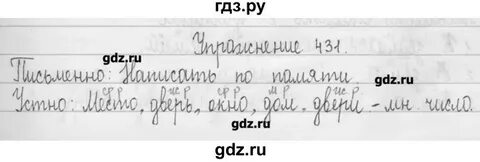 гдз.ру
Упражнение 431.
gdz.ru gdz.ru
Письменно: Написать по памяти.
ср.р ж.р ср.р м.р ж.р
Устно: Место, дверь, окно, дом. двери - мн. число.
gdz.ru gdz.ru